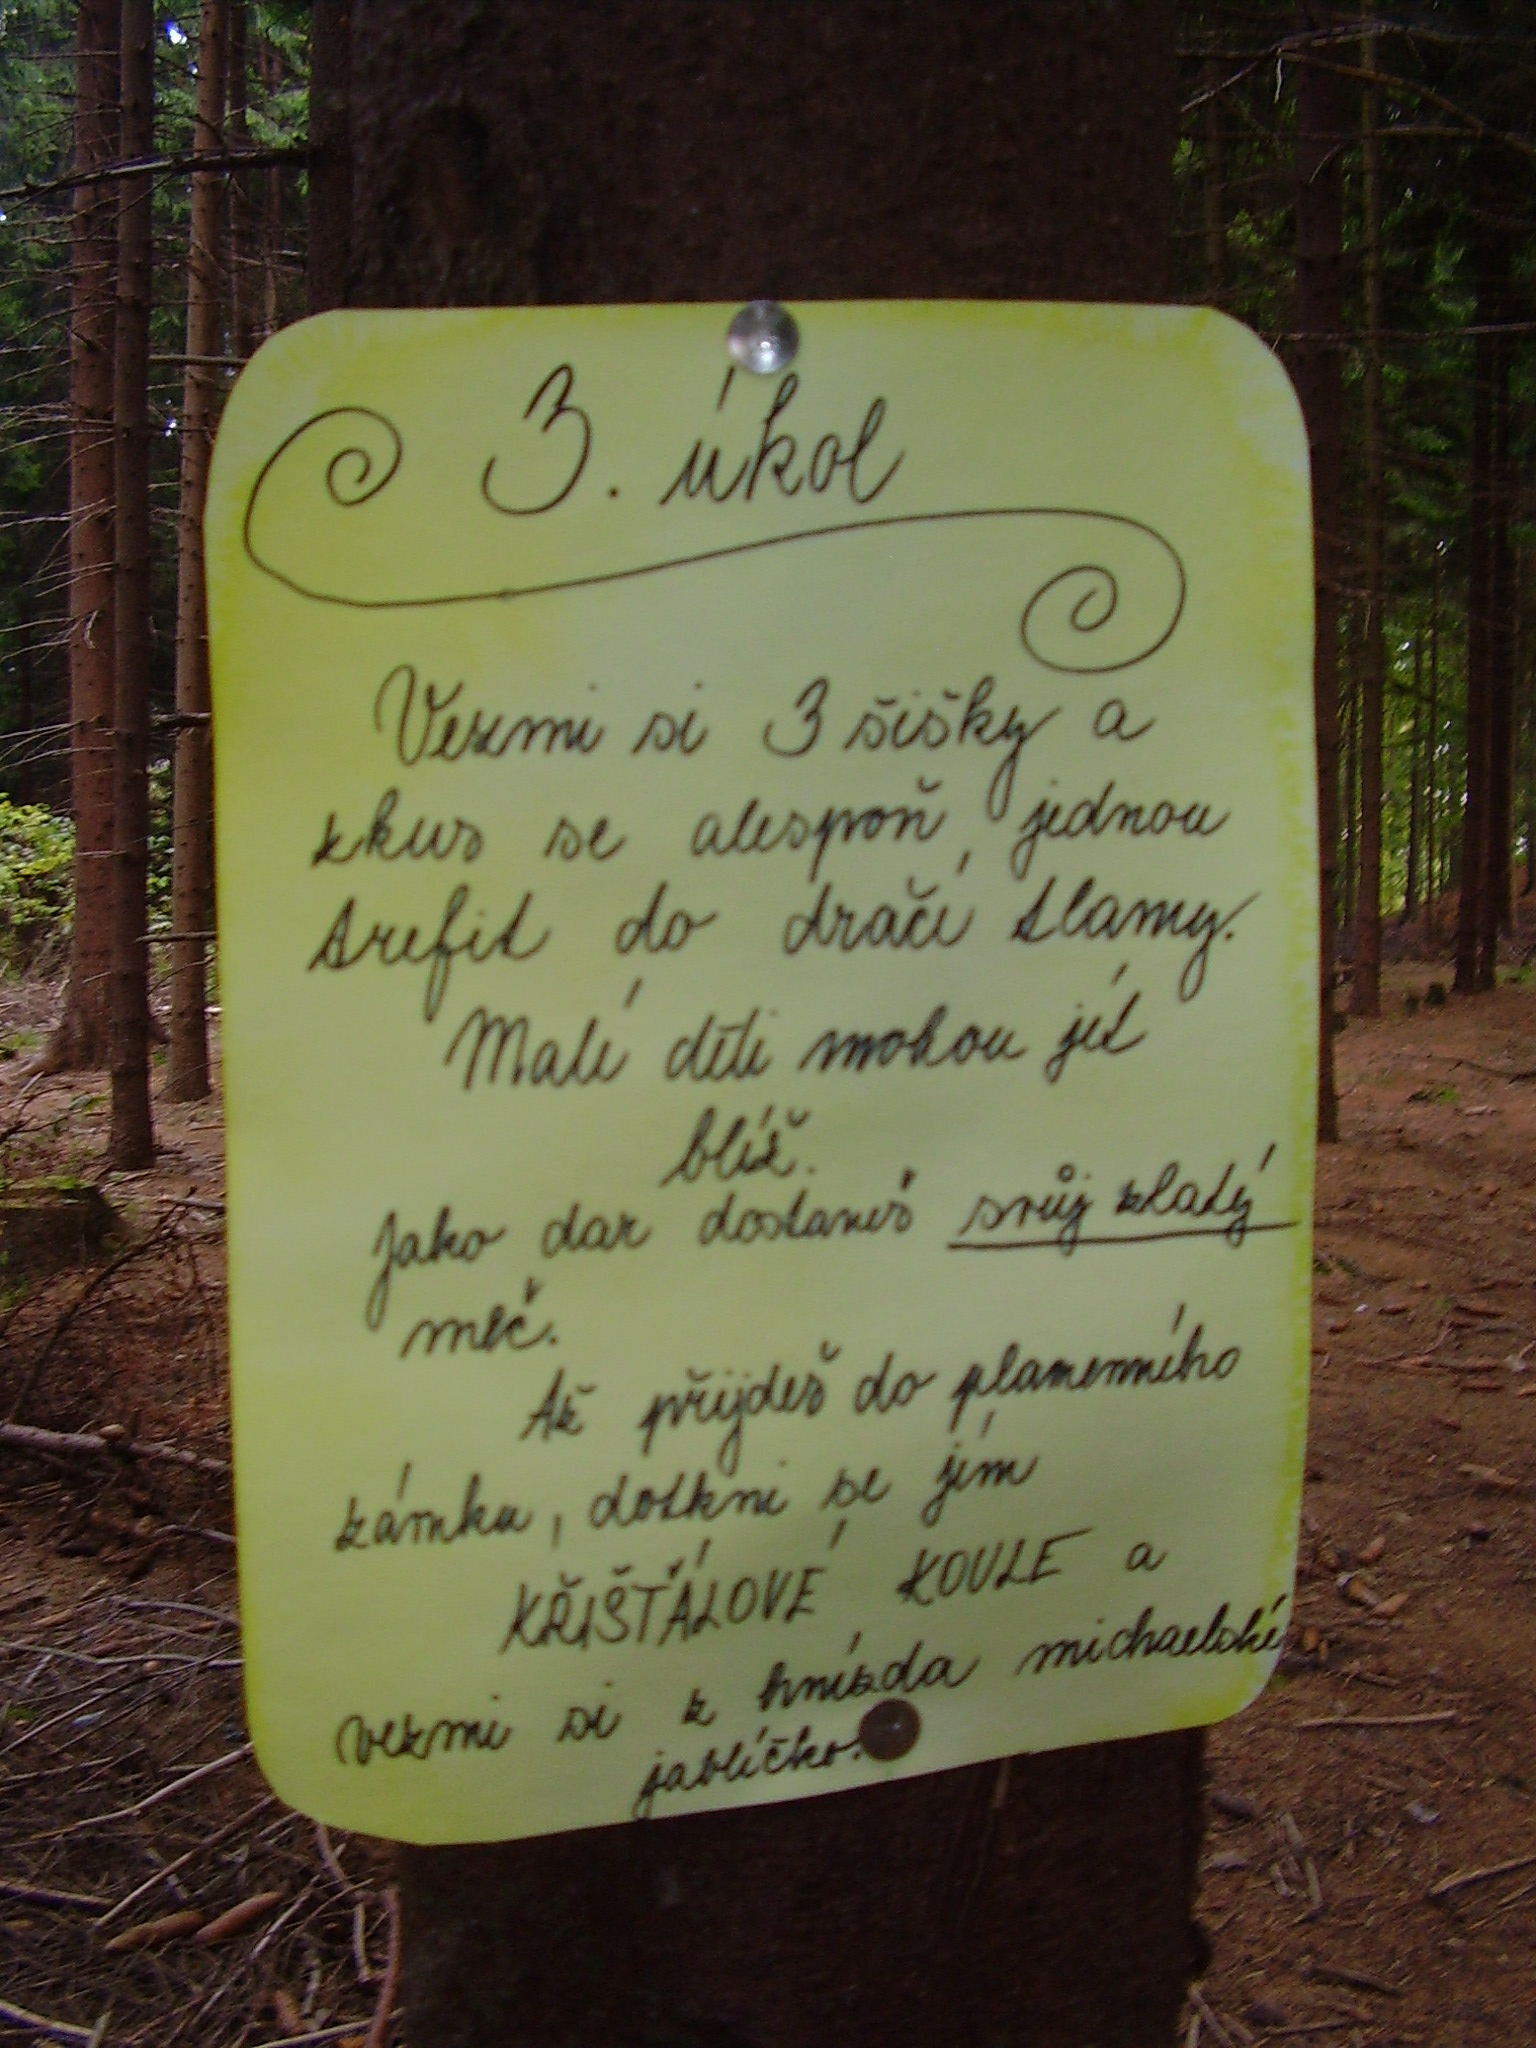 3. úkol
Vezmi si 3 šišky a
zkus se alespoň jednou
trefit do dračí tlamy.
Malé děti mohou jít
blíž.
Jako dar dostaneš svůj zlatý
meč.
Až přijdeš do plamenného
zámku, dotkni se jím
KŘIŠŤÁLOVÉ KOULE a
vezmi si z hnízda michaelské
jablíčko.